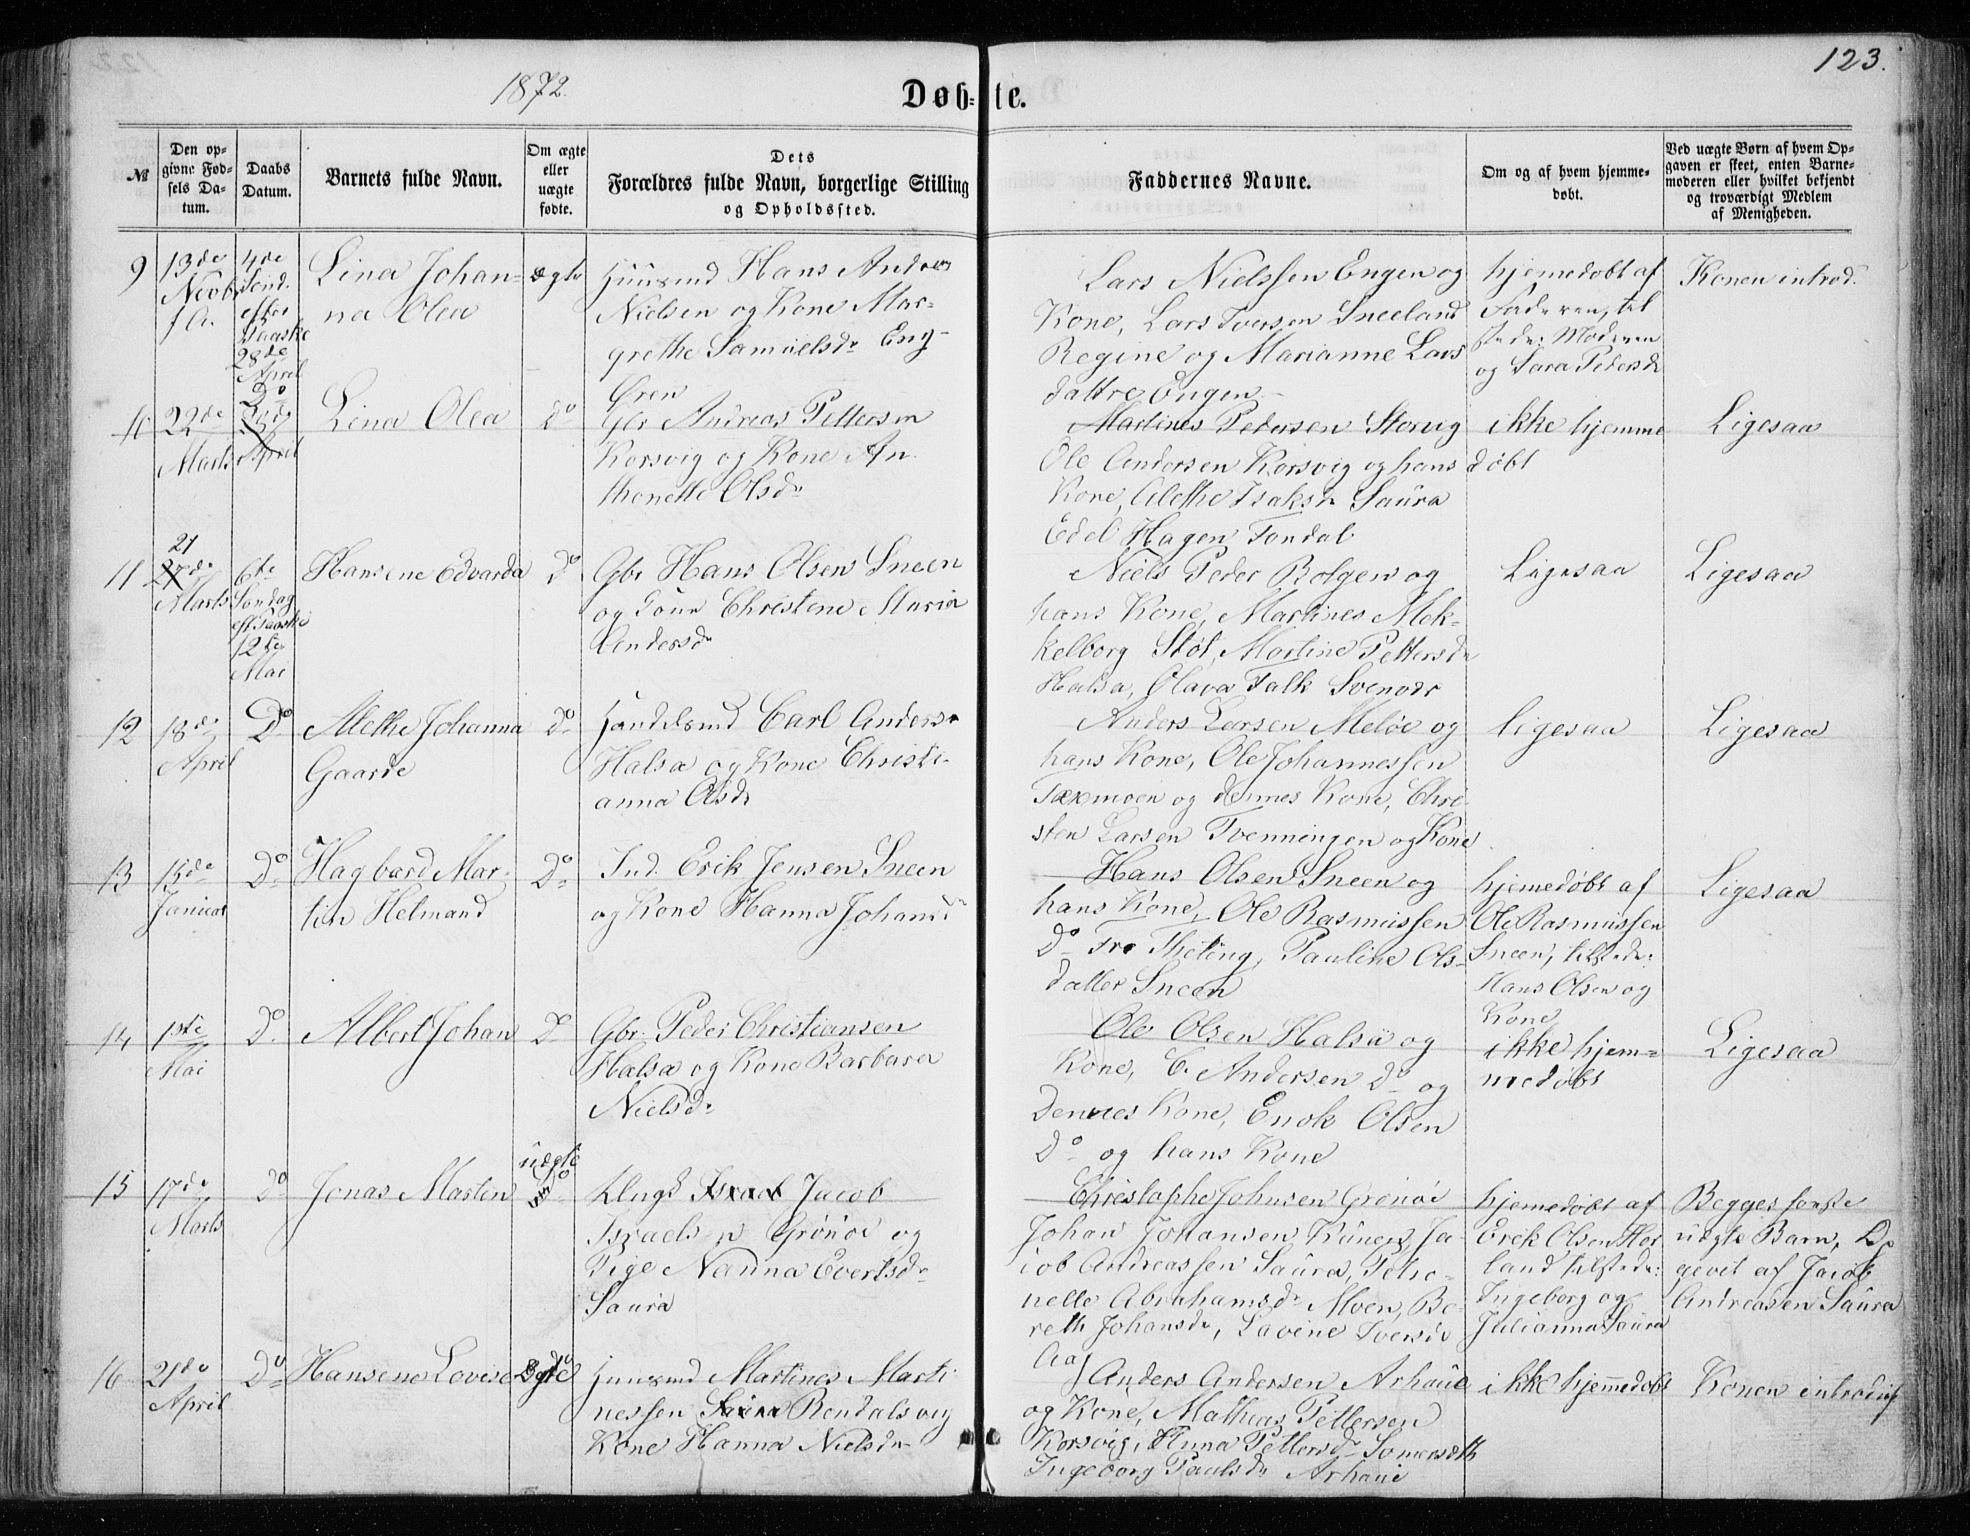 123.
1872.
Døb-te.
№
Den op-
givne Fød-
sels Da-
tum.
Daabs
Datum.
Barnets fulde Navn.
Om ægte
eller
uægte
fødte.
Dets
Forældres fulde Navn, borgerlige Stilling
og Opholdssted.
Faddernes Navne.
Om og af hvem hjemme-
døbt.
Ved uægte Børn af hvem Op-
gaven er skeet, enten Barne-
moderen eller hvilket bekjendt
og troværdigt Medlem
af Menigheden.
9
13de
Novbr
f.A.
4de
Sønd.
efter
Paaske
28de
April
Lina Johan-
na Olea
ægte
Huusmd Hans Andreas
Nielsen og Kone Mar-
grethe Samuelsdr Eng-
Øren
Lars Nielssen Engen og
Kone, Lars Iversen Sneeland
Regine og Marianne Lars
dattre Engen
hjemedøbt af
Faderen, til
stede: Moderen
og Sara Pedersdr
Konen introd.
10
22de
Marts
Do
28de
April
Lina Olea
do
Gbr Andreas Pettersen
Korsvig og Kone An
thonette Olsdr
Martines Pedersen Storvig
Ole Andersen Korsvig og hans
Kone, Alethe Isaksdr Saura
Edel Hagen Fondal
ikke hjemme
døbt
Ligesaa
11
21
27de
Marts
6te
Søndag
eft. Paaske
12te
Mai
Hansine Edvarda
Do
Gbr Hans Olsen Sneen
og Kone Christene Maria
Andersdr
Niels Peder Bolgen og
hans Kone, Martines Mok-
kelborg Støt, Martine Pettersdr
Halsa, Olava Falk Svenodr
Ligesaa
Ligesaa
12
18de
April
Do
Alethe Johanna
Gaarde
Do
Handelsmd Carl Andersen
Halsa og Kone Christi-
anna Olsdr
Anders Larsen Meløe og
hans Kone, Ole Johannessen
Texmoen og dennes Kone, Chri
sten Larsen Tvenningen og Kone
Ligesaa
Ligesaa
13
15de
Januar
Do
Hagbard Mar-
tin Helmand
Do
Ind. Erik Jensen Sneen
og Kone Hanna Johansdr
Hans Olsen Sneen og
hans Kone, Ole Rasmussen
Do Fro Theting, Pauline Ols-
datter Sneen
hjemedøbt af
Ole Rasmussen
Sneen, tilstede:
Hans Olsen og
Kone
Ligesaa
14
1ste
Mai
Do
Albert Johan
Do
Gbr. Peder Christiansen
Halsa og Kone Barbara
Nielsdr
Ole Olsen Halsa og
Kone, C. Andersen Do og
Dennes Kone, Enok Olsen
Do og hans Kone
ikke hjem-
medøbt
Ligesaa
15
17de
Marts
Do
Jonas Martin
uægte
Do
Ungk Israel Jacob
Israelsen Grønøe og
Pige Nanna Evertsdr
Saura
Christophe Johnsen Grønøe
Johan Johansen Kunes, Ja-
cob Andreassen Saura, Petro-
nelle Abrahamsdr Alven, Be-
reth Johansdr, Lavine Iversdr
Aa
hjemedøbt af
Erik Olsen Hol
land tilstede:
Ingeborg og
Julianna Saura
Begges første
uægte Barn, Op
gevet af Jacob
Andreasen Saura
16
21de
April
Do
Hansine Lovise
Ægte
Huusmd Martines Marti
nessen Saura Bendalsvig
Kone Hanna Nielsdr
Anders Andersen Arhaue
og Kone, Mathias Pettersen
Korsvig, Anna Pettersdr Somersæth
Ingeborg Paulsdr Arhaue
ikke hjemmedøbt
Konen introduc